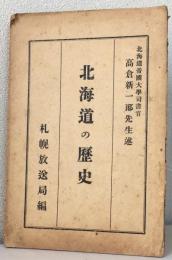 北海道帝國大學司書官
高倉新一郎先生述
北海道の歷史
札幌放送局編